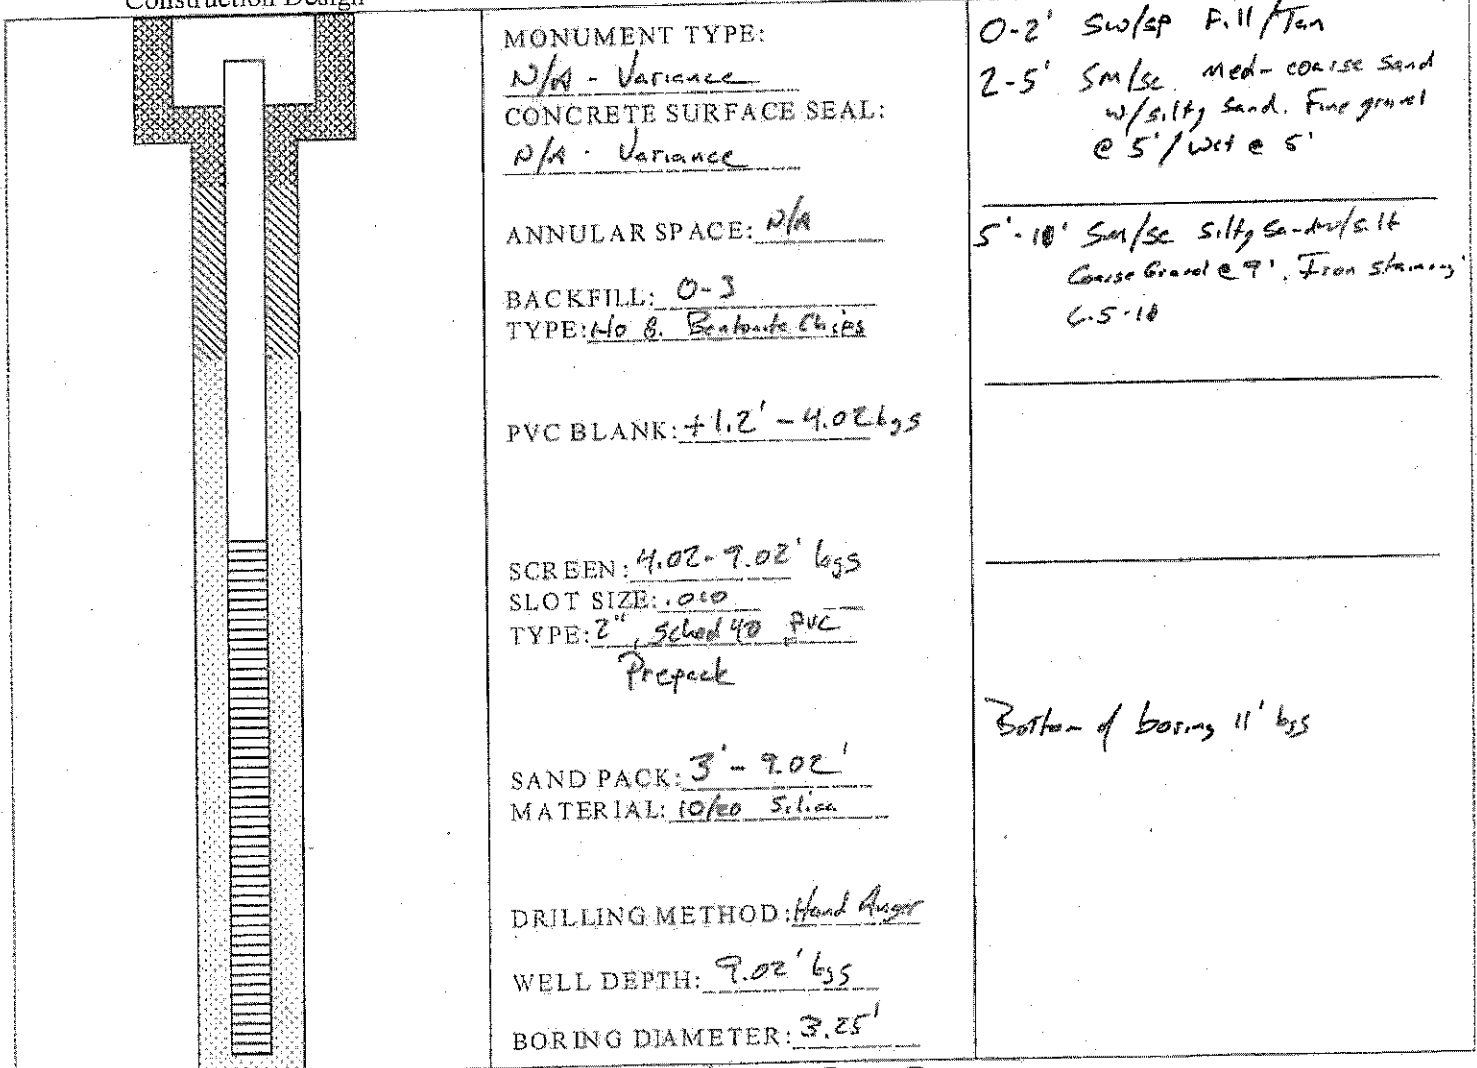 Construction Design
MONUMENT TYPE:
N/A - Variance
CONCRETE SURFACE SEAL:
N/A - Variance
ANNULAR SPACE: N/A
BACKFILL: 0-3
TYPE: No 8. Bentonite Chips
PVC BLANK: +1.2' - 4.02 bgs
SCREEN: 4.02-9.02' bgs
SLOT SIZE: .010
TYPE: 2", Sched 40 PVC
Prepack
SAND PACK: 3' - 9.02'
MATERIAL: 10/20 Silica
DRILLING METHOD: Hand Auger
WELL DEPTH: 9.02' bgs
BORING DIAMETER: 3.25'
0-2' SW/SP Fill/Tan
2-5' SM/SC Med-coarse sand
w/silty sand. Fine gravel
@ 5'/ Wet @ 5'
5'-10' SM/SC Silty Sand w/silt
Coarse Gravel @ 9'. Iron staining
6.5-10
Bottom of boring 11' bgs